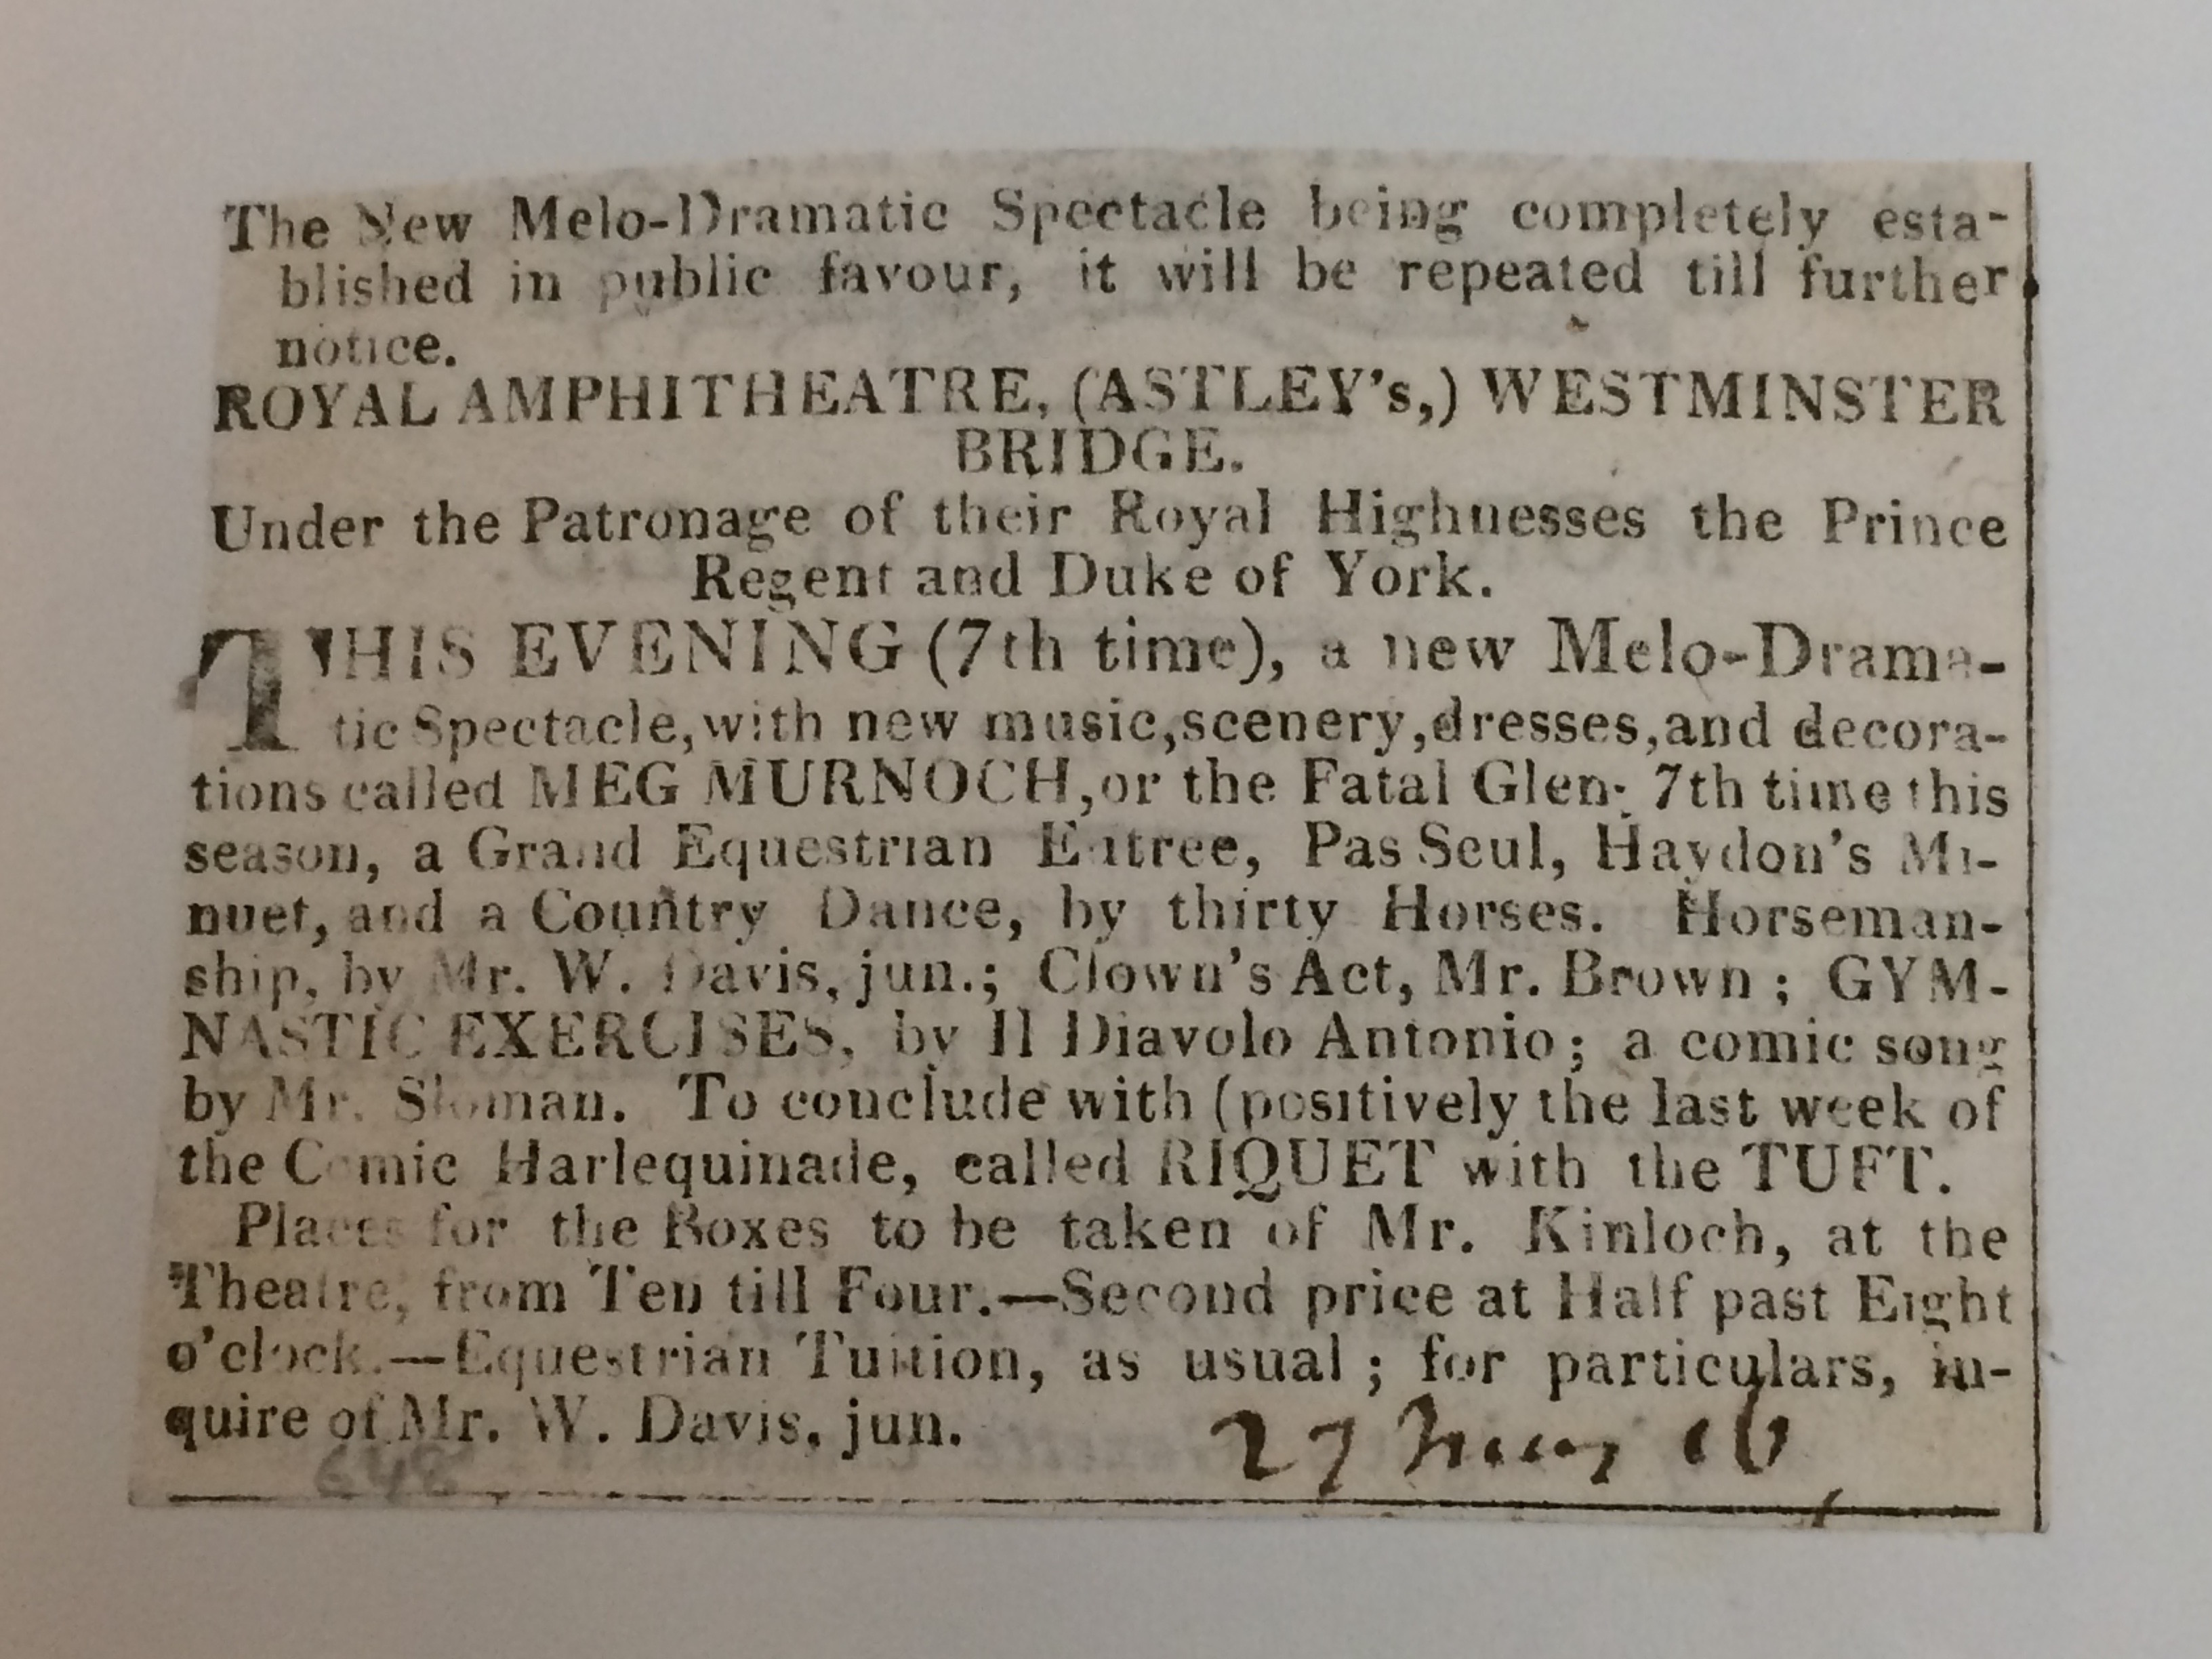 The New Melo-Dramatic Spectacle being completely esta-
blished in public favour, it will be repeated till further
notice.
ROYAL AMPHITHEATRE, (ASTLEY's,) WESTMINSTER
BRIDGE.
Under the Patronage of their Royal Highnesses the Prince
Regent and Duke of York.
THIS EVENING (7th time), a new Melo-Drama-
tic Spectacle, with new music, scenery, dresses, and decora-
tions called MEG MURNOCH, or the Fatal Glen; 7th time this
season, a Grand Equestrian Entree, Pas Seul, Haydon's Mi-
nuet, and a Country Dance, by thirty Horses. Horseman-
ship, by Mr. W. Davis, jun.; Clown's Act, Mr. Brown; GYM-
NASTIC EXERCISES, by Il Diavolo Antonio; a comic song
by Mr. Sloman. To conclude with (positively the last week of
the Comic Harlequinade, called RIQUET with the TUFT.
Places for the Boxes to be taken of Mr. Kinloch, at the
Theatre, from Ten till Four.—Second price at Half past Eight
o'clock.—Equestrian Tuition, as usual; for particulars, in-
quire of Mr. W. Davis, jun.
27 16
648